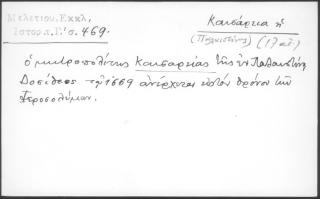 Μελετίου, Εκκλ,
Ιστορ.τ.Γ'σ.469.
Καισάρεια ἡ
(Παλαιστίνης) (17 αἰ.)
ὁ μητροπολίτης Καισαρείας τῆς ἐν Παλαιστίνῃ
Δοσίθεος τῷ 1669 ἀνέρχεται εἰς τὸν θρόνον τῶν
Ἱεροσολύμων.